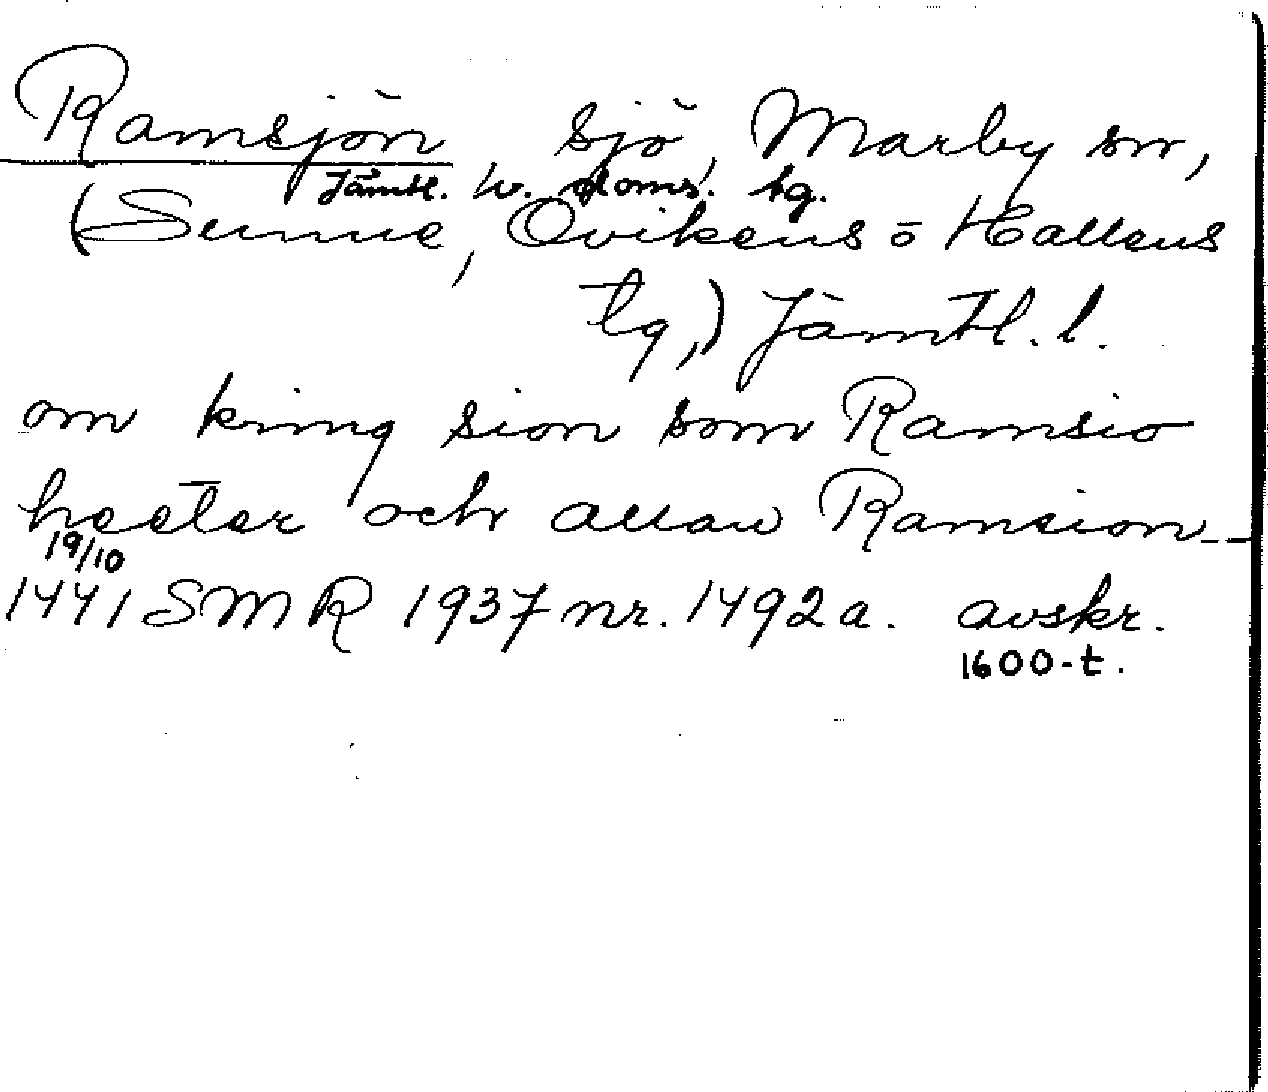 Ramsjön, sjö, Marby sn,
Jämtl. v. doms. tg.
(Sunne, Ovikens o Hallens
tg,) Jämtl. l.
om kring sion som Ramsio
heeter och allan Ramsion_
19/10
1441 SMR 1937 nr. 1492a. avskr.
1600-t.